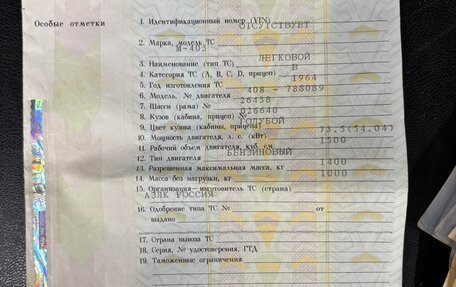 Особые отметки
1. Идентификационный номер (VIN)
ОТСУТСТВУЕТ
2. Марка, модель ТС
М-403
3. Наименование (тип ТС) ЛЕГКОВОЙ
4. Категория ТС (A, B, C, D, прицеп) В
5. Год изготовления ТС 1964
6. Модель, № двигателя 408 - 788089
7. Шасси (рама) № 26438
8. Кузов (кабина, прицеп) № 026640
9. Цвет кузова (кабины, прицепа) ГОЛУБОЙ
10. Мощность двигателя, л. с. (кВт) 73.5(54.04)
11. Рабочий объем двигателя, куб. см 1500
12. Тип двигателя БЕНЗИНОВЫЙ
13. Разрешенная максимальная масса, кг 1400
14. Масса без нагрузки, кг 1000
15. Организация - изготовитель ТС (страна)
АЗЛК РОССИЯ
16. Одобрение типа ТС № от
выдано
17. Страна вывоза ТС
18. Серия, № удостоверения, ГТД
19. Таможенные ограничения